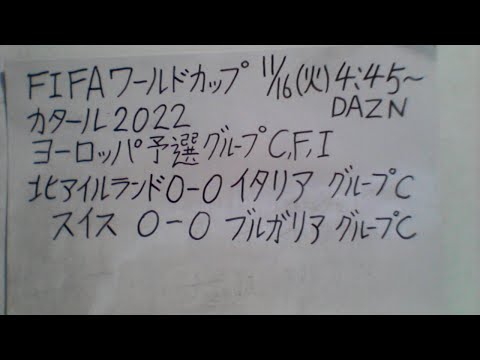 FIFAワールドカップ 11/16(火)4:45~
カタール2022 DAZN
ヨーロッパ予選グループC,F,I
北アイルランド0-0イタリア グループC
スイス 0-0 ブルガリア グループC